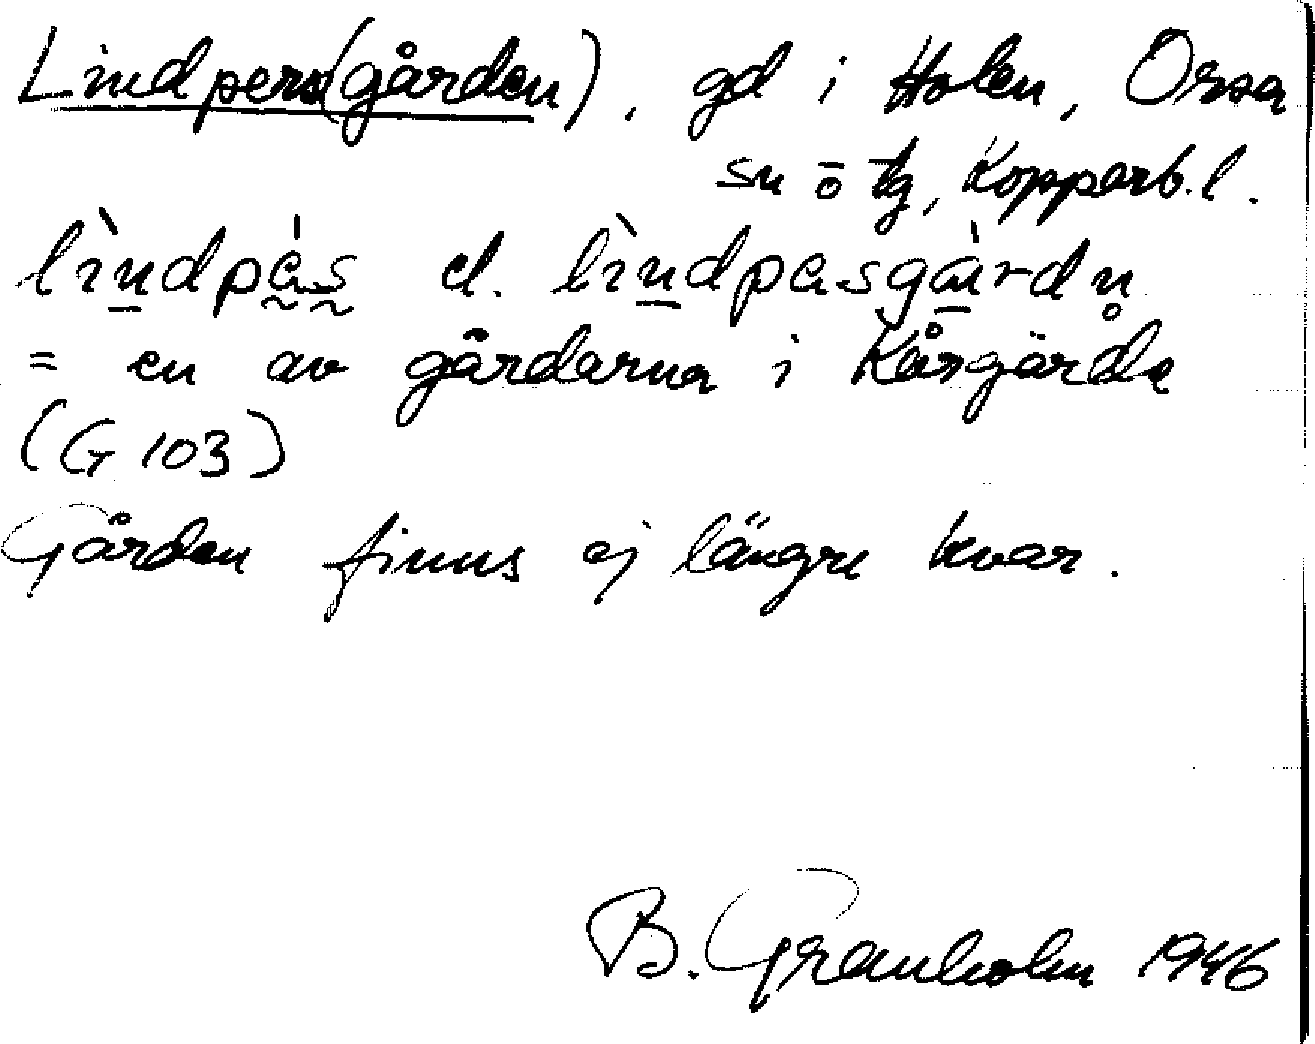 Lindpers(gården), gd i Holen, Orsa
sn o tg, Kopparb. l.
lìndpàs el. lìndpasgàrdn̥
= en av gårdarna i Kårgärde
(G 103)
Gården finns ej längre kvar.
B. Granholm 1946